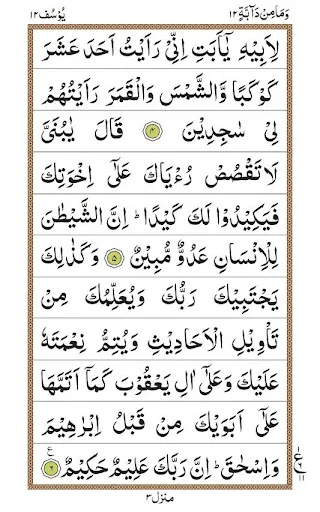 وَمَا مِنْ دَآبَّةٍ ١٢ يُوْسُف ١٢
لِاَبِيْهِ يٰۤاَبَتِ اِنِّيْ رَاَيْتُ اَحَدَ عَشَرَ
كَوْكَبًا وَّالشَّمْسَ وَالْقَمَرَ رَاَيْتُهُمْ
لِيْ سٰجِدِيْنَ ۴ قَالَ يٰبُنَيَّ
لَا تَقْصُصْ رُءْيَاكَ عَلٰۤى اِخْوَتِكَ
فَيَكِيْدُوْا لَكَ كَيْدًا ؕ اِنَّ الشَّيْطٰنَ
لِلْاِنْسَانِ عَدُوٌّ مُّبِيْنٌ ۵ وَكَذٰلِكَ
يَجْتَبِيْكَ رَبُّكَ وَيُعَلِّمُكَ مِنْ
تَاْوِيْلِ الْاَحَادِيْثِ وَيُتِمُّ نِعْمَتَهٗ
عَلَيْكَ وَعَلٰۤى اٰلِ يَعْقُوْبَ كَمَاۤ اَتَمَّهَا
عَلٰۤى اَبَوَيْكَ مِنْ قَبْلُ اِبْرٰهِيْمَ
وَاِسْحٰقَ ؕ اِنَّ رَبَّكَ عَلِيْمٌ حَكِيْمٌ ۶
منزل ۳